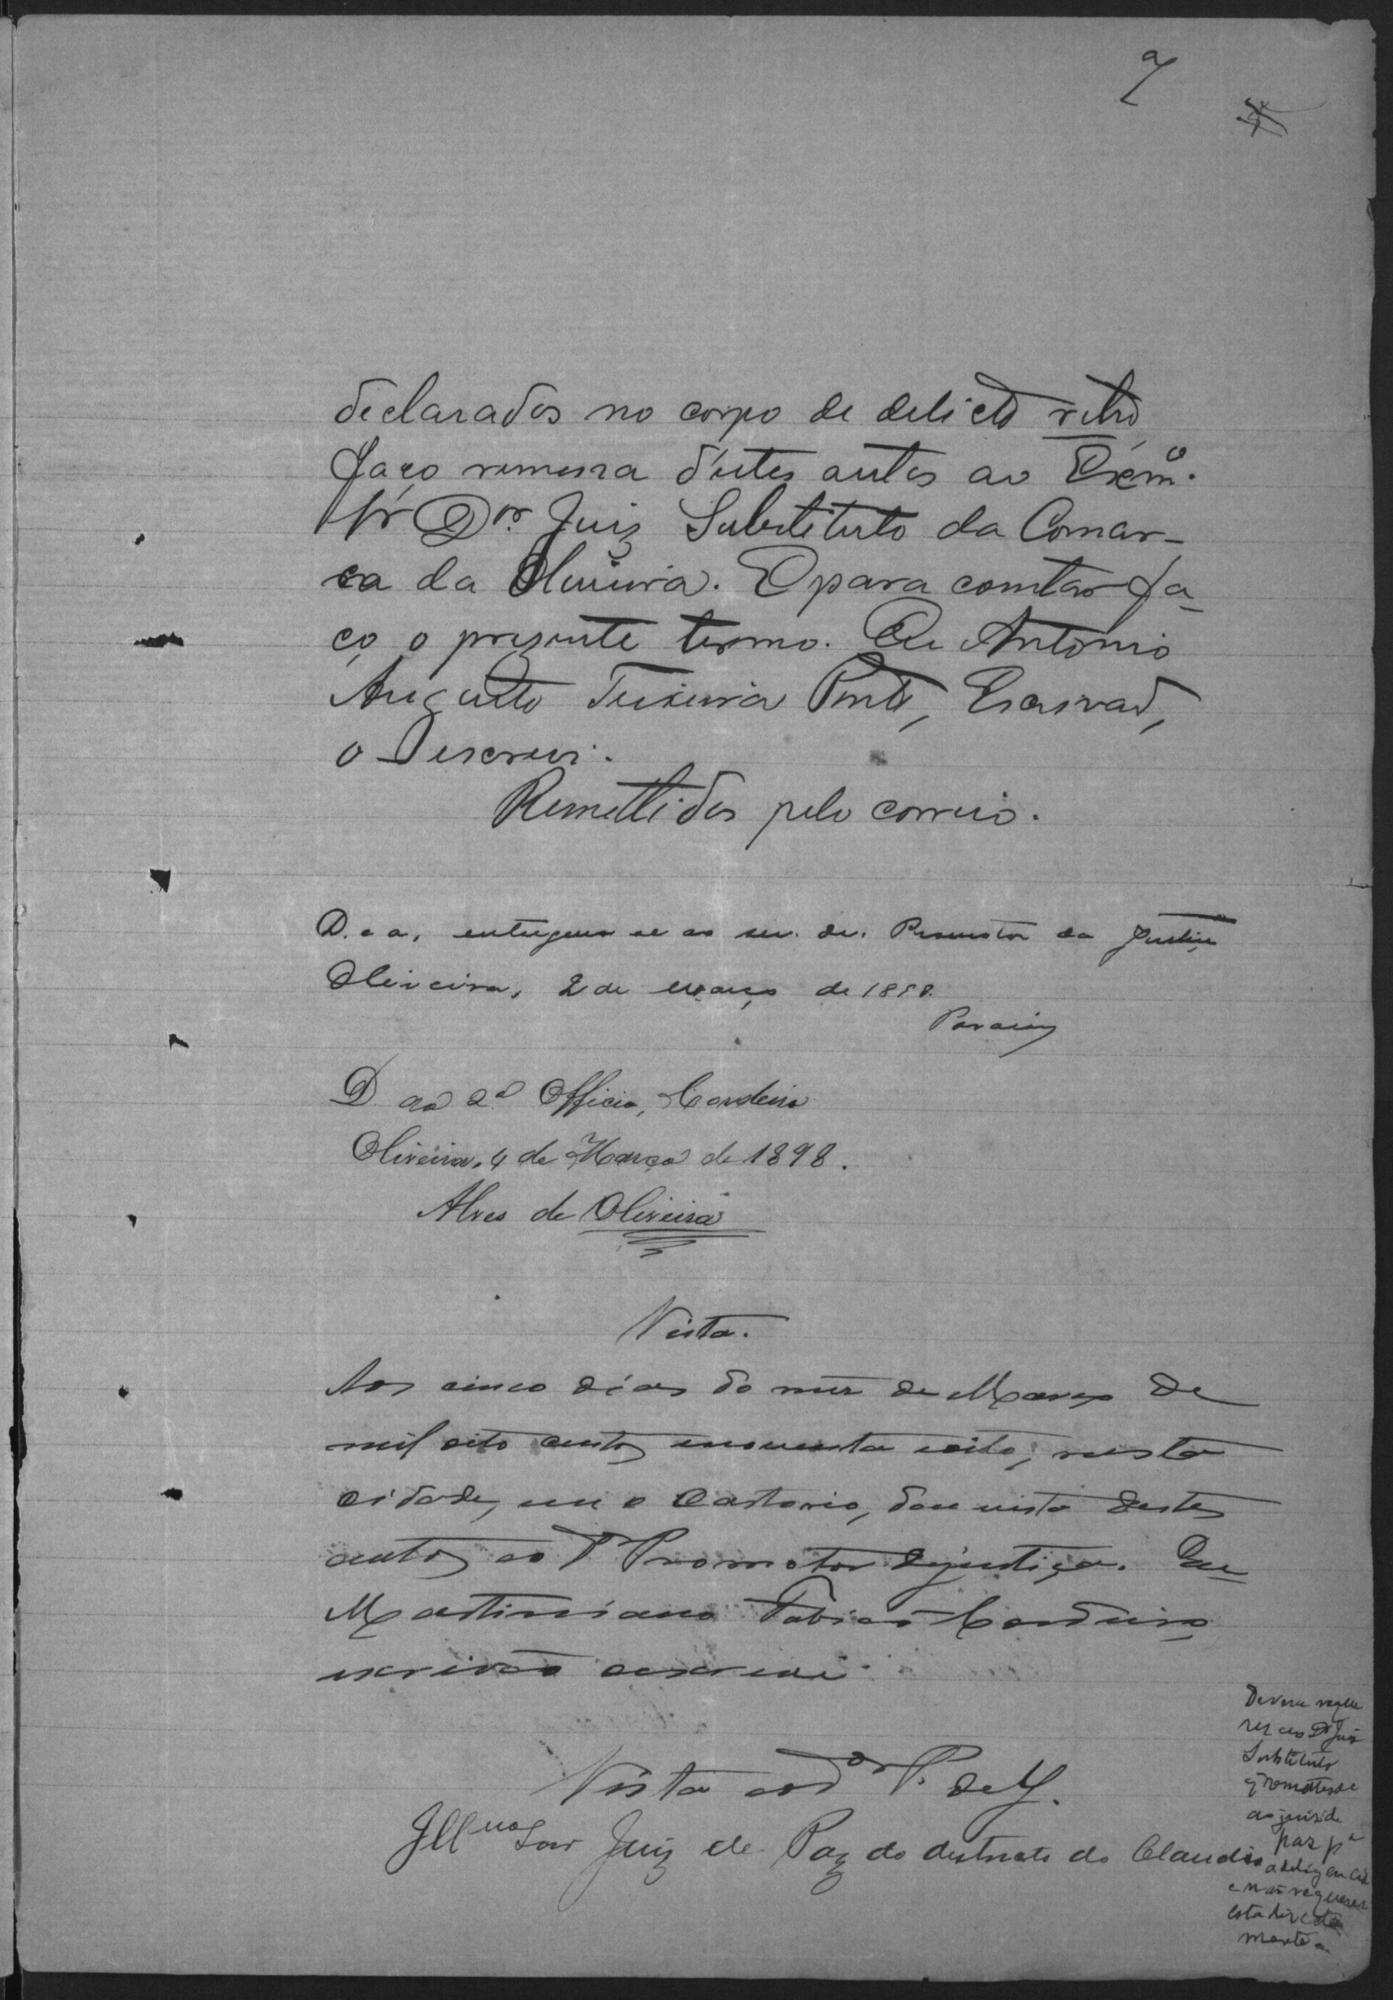 7
declarados no corpo de delicto retro
faço remessa d'estes autos ao Exmº.
Sr Dor. Juiz Substituto da Comar-
ca da Oliveira. E para constar fa-
ço o prezente termo. Eu Antonio
Augusto Teixeira Pinto, Escrivaõ,
o escrevi.
Remettidos pelo correio.
D. e a. entregue se ao snr. dr. Promotor da Justiça
Oliveira, 2 de março de 1898.
D. ao 2º Officio, Cordeiro
Oliveira, 4 de Março de 1898.
Alves de Oliveira
Vista.
Aos cinco dias do mez de Março de
mil oito centos e noventa e oito, nesta
cidade, em o Cartorio, dou vista destes
autos ao Dr Promotor de justiça. Eu
Martiniano Fabiaõ Cordeiro
escrivaõ o escrevi.
Vista ao Dor P. de J.
Illmo Snr Juiz de Paz do districto do Claudio
Devera reque
rer ao Dr Juiz
Substituto
q remettesse
ao juiz de
paz pª
a diligencia
e não requerer
esta directa
mente